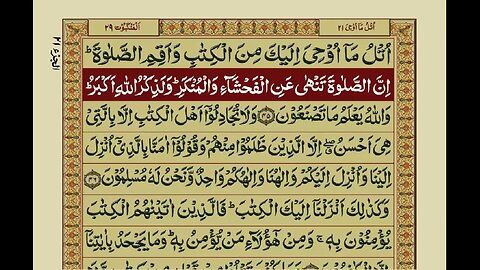 اُتْلُ مَآ اُوْحِىَ ٢١
اَلْعَنْكَبُوْت ٢٩
اُتْلُ مَآ اُوْحِىَ اِلَيْكَ مِنَ الْكِتٰبِ وَاَقِمِ الصَّلٰوةَ ؕ
اِنَّ الصَّلٰوةَ تَنْهٰى عَنِ الْفَحْشَآءِ وَالْمُنْكَرِ ؕ وَلَذِكْرُ اللّٰهِ اَكْبَرُ ؕ
وَاللّٰهُ يَعْلَمُ مَا تَصْنَعُوْنَ ۝٤٥ وَلَا تُجَادِلُوْٓا اَهْلَ الْكِتٰبِ اِلَّا بِالَّتِىْ
هِىَ اَحْسَنُ ۖ اِلَّا الَّذِيْنَ ظَلَمُوْا مِنْهُمْ وَقُوْلُوْٓا اٰمَنَّا بِالَّذِىْٓ اُنْزِلَ
اِلَيْنَا وَاُنْزِلَ اِلَيْكُمْ وَاِلٰهُنَا وَاِلٰهُكُمْ وَاحِدٌ وَّنَحْنُ لَهٗ مُسْلِمُوْنَ ۝٤٦
وَكَذٰلِكَ اَنْزَلْنَآ اِلَيْكَ الْكِتٰبَ ؕ فَالَّذِيْنَ اٰتَيْنٰهُمُ الْكِتٰبَ
يُؤْمِنُوْنَ بِهٖ ۚ وَمِنْ هٰٓؤُلَآءِ مَنْ يُّؤْمِنُ بِهٖ ؕ وَمَا يَجْحَدُ بِاٰيٰتِنَآ